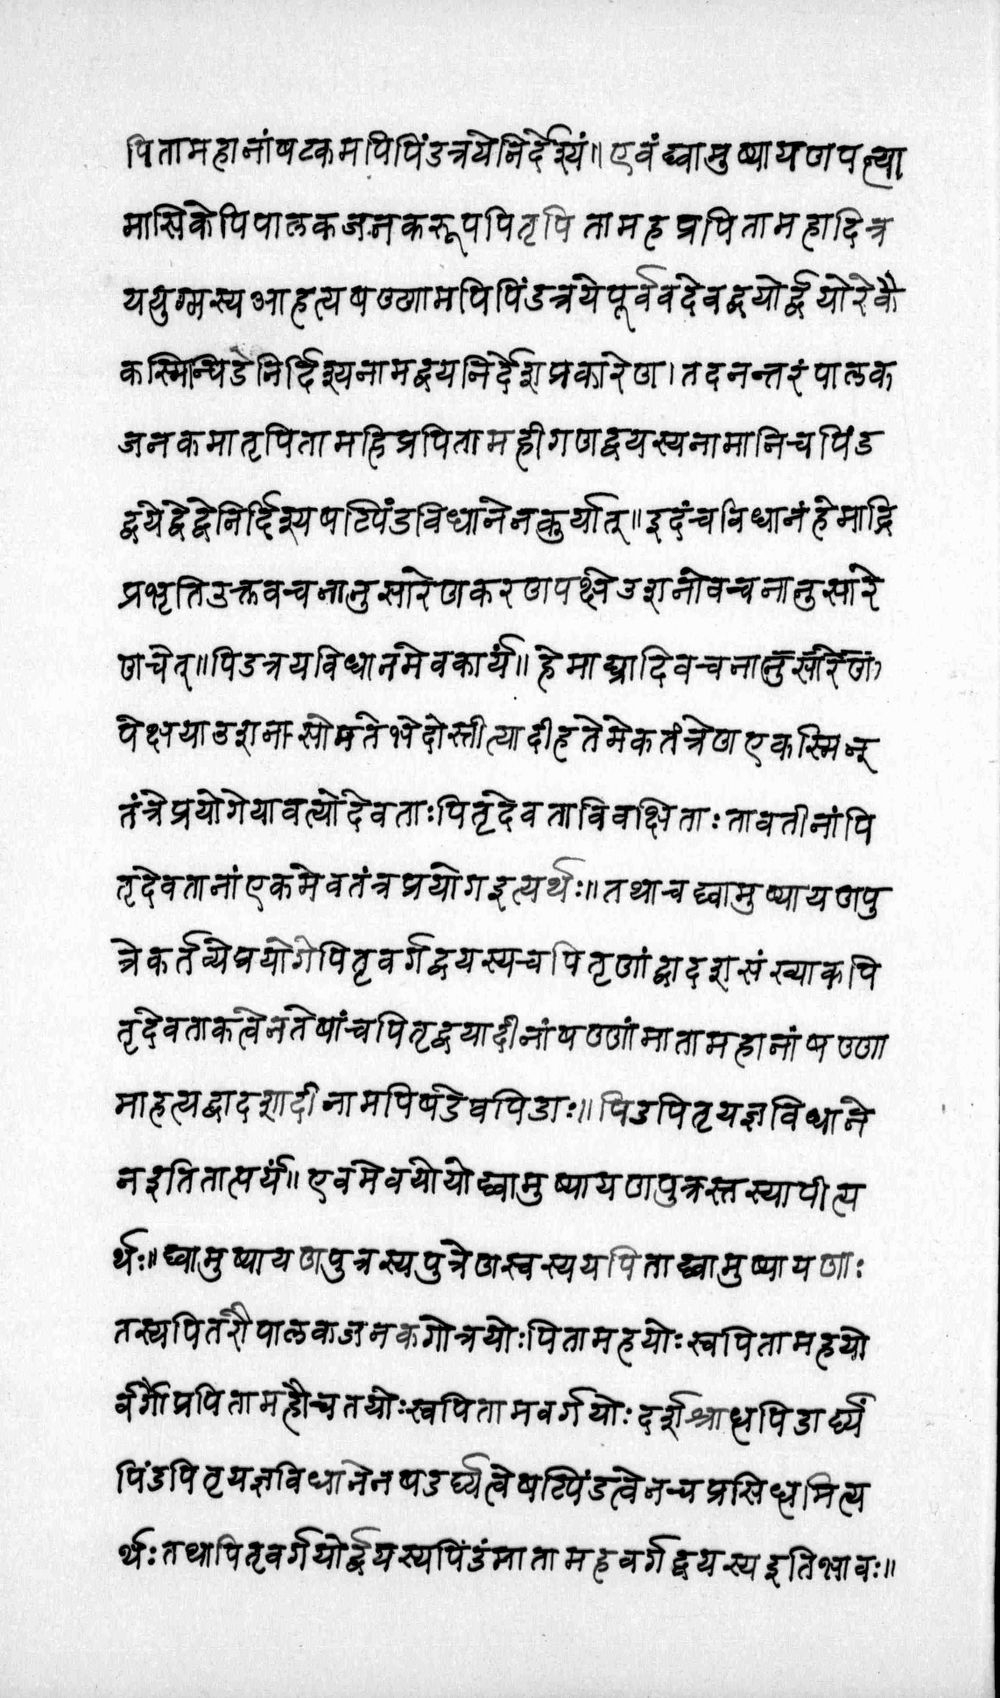 पितामहानांषट्कमपिपिंडत्रयेनिर्देश्यं॥एवंद्व्यामुष्यायणपत्न्या
मासिकेपिपालकजनकरूपपितृपितामहप्रपितामहादित्र
ययुग्मस्यआहत्यषण्णामपिपिंडत्रयेपूर्ववदेवद्वयोर्द्वयोरेकै
कस्मिन्पिंडेनिर्दिश्यनामद्वयनिर्देशप्रकारेण।तदनन्तरंपालक
जनकमातृपितामहिप्रपितामहीगणद्वयस्यनामानिचपिंड
द्वयेद्वेद्वेनिर्दिश्यषट्पिंडविधानेनकुर्यात्॥इदंचविधानंहेमाद्रि
प्रभृतिउक्तवचनानुसारेणकरणपक्षेउशनोवचनानुसारे
णचेत्॥पिडत्रयविधानमेवकार्यं॥हेमाद्र्यादिवचनानुसारेण
पेक्षयाउशनासोमतेभेदोस्तीत्यादीहतेमेकतंत्रेणएकस्मिन्
तंत्रेप्रयोगेयावत्योदेवताःपितृदेवताविवक्षिताःतावतीनांपि
तृदेवतानांएकमेवतंत्रप्रयोगइत्यर्थः॥तथाचद्व्यामुष्यायणपु
त्रेकर्तव्येप्रयोगेपितृवर्गद्वयस्यचपितृणांद्वादशसंख्याकपि
तृदेवताकत्वेनतेषांचपितृद्वयादीनांषण्णांमातामहानांषण्णा
माहत्यद्वादशादीनामपिषडेवपिडाः॥पिडपितृयज्ञविधाने
नइतितात्पर्यं॥एवमेवयोयोद्व्यामुष्यायणपुत्रस्तस्यापीत्य
र्थः॥द्व्यामुष्यायणपुत्रस्यपुत्रेणस्वस्ययपिताद्व्यामुष्यायणाः
तस्यपितरौपालकजनकगोत्रयोःपितामहयोःस्वपितामहयो
र्वर्गौप्रपितामहौचतयोःस्वपितामवर्गयोःदर्शश्राध्धपिडार्घ्यं
पिंडपितृयज्ञविधानेनषडर्घ्यत्वेषट्पिंडत्वेनचप्रसिध्धमित्य
र्थःतथापितृवर्गयोर्द्वयस्यपिंडंमातामहवर्गद्वयस्यइतिभावः॥